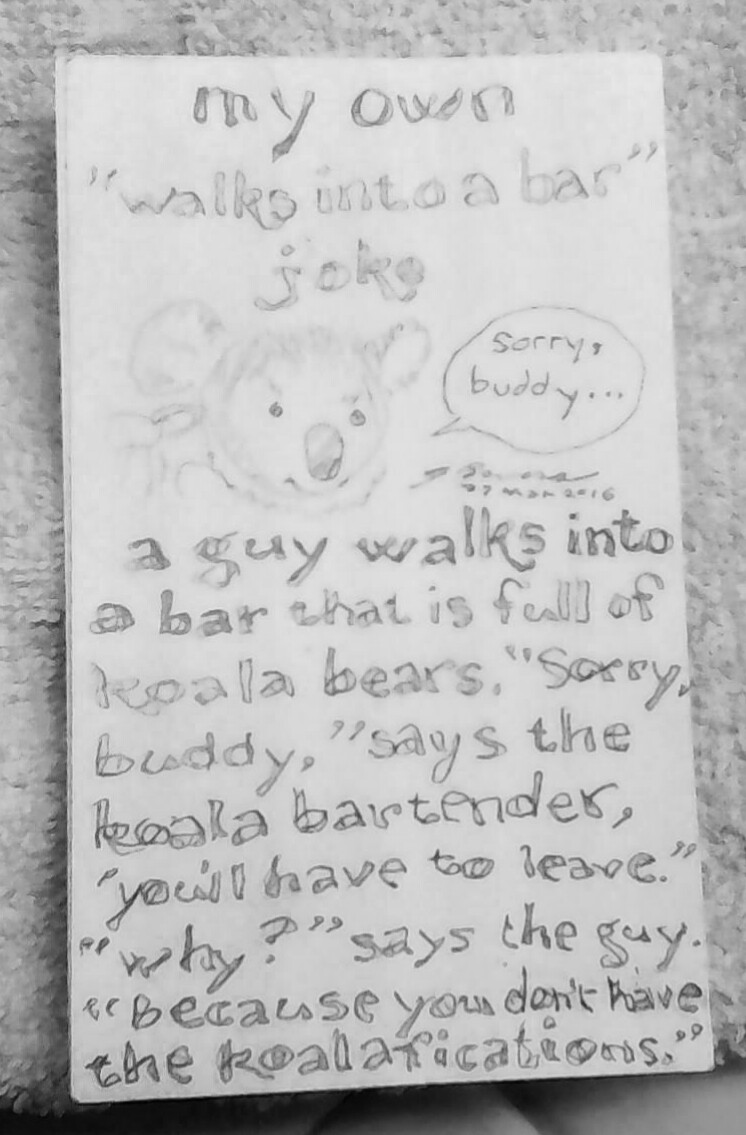 my own
"walks into a bar"
joke
sorry,
buddy...
27 mar 2016
a guy walks into
a bar that is full of
koala bears. "Sorry,
buddy," says the
koala bartender,
"you'll have to leave."
"why?" says the guy.
"Because you don't have
the koalafications."